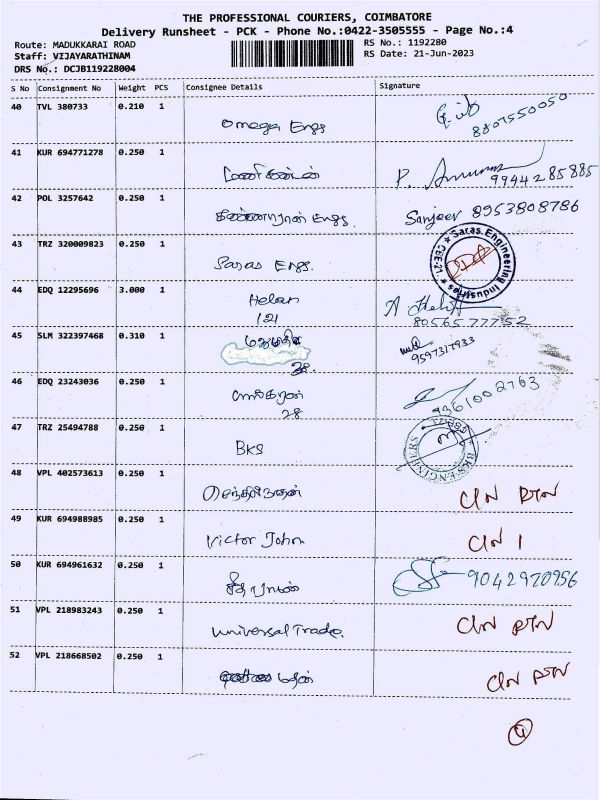 THE PROFESSIONAL COURIERS, COIMBATORE
Delivery Runsheet - PCK - Phone No.:0422-3505555 - Page No.:4
Route: MADUKKARAI ROAD RS No.: 1192280
Staff: VIJAYARATHINAM RS Date: 21-Jun-2023
DRS No.: DCJB119228004
S No Consignment No Weight PCS Consignee Details Signature
40 TVL 380733 0.210 1
Omega Engs 8807550050
41 KUR 694771278 0.250 1
மணிகண்டன் P. 9944285885
42 POL 3257642 0.250 1
Engs Sanjeev 8953808786
43 TRZ 320009823 0.250 1
Saras Engs. Saras Engineering Industries CBE-21
44 EDQ 12295696 3.000 1
Helan
121 8056577752
45 SLM 322397468 0.310 1
9597317933
28.
46 EDQ 23243036 0.250 1
28 9361002763
47 TRZ 25494788 0.250 1
BKS BKS ENGINEERS
48 VPL 402573613 0.250 1
C/N RTN
49 KUR 694988985 0.250 1
Victor John C/N 1
50 KUR 694961632 0.250 1
9042970956
51 VPL 218983243 0.250 1
Universal Trade. C/N RTN
52 VPL 218668502 0.250 1
C/N RTN
4